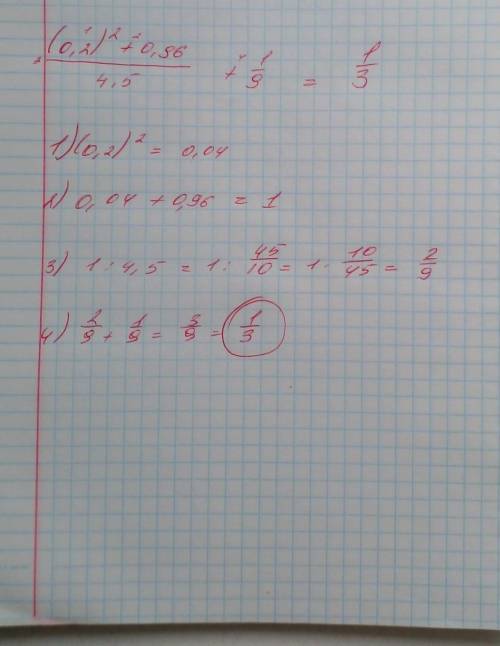 ((0,2)² + 0,96)/4,5 + 1/9 = 1/3
1) (0,2)² = 0,04
2) 0,04 + 0,96 = 1
3) 1 : 4,5 = 1 : 45/10 = 1 · 10/45 = 2/9
4) 2/9 + 1/9 = 3/9 = 1/3